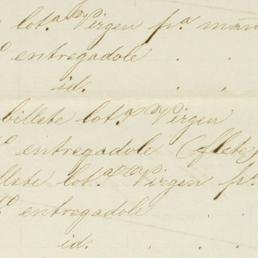 lot.ª Virgen p.ª man
entregadole . .
id. . .
billete lot.ª Virgen
entregadole (flete)
llete lot.ª Virgen p.ª
entregadole . .
id. . .